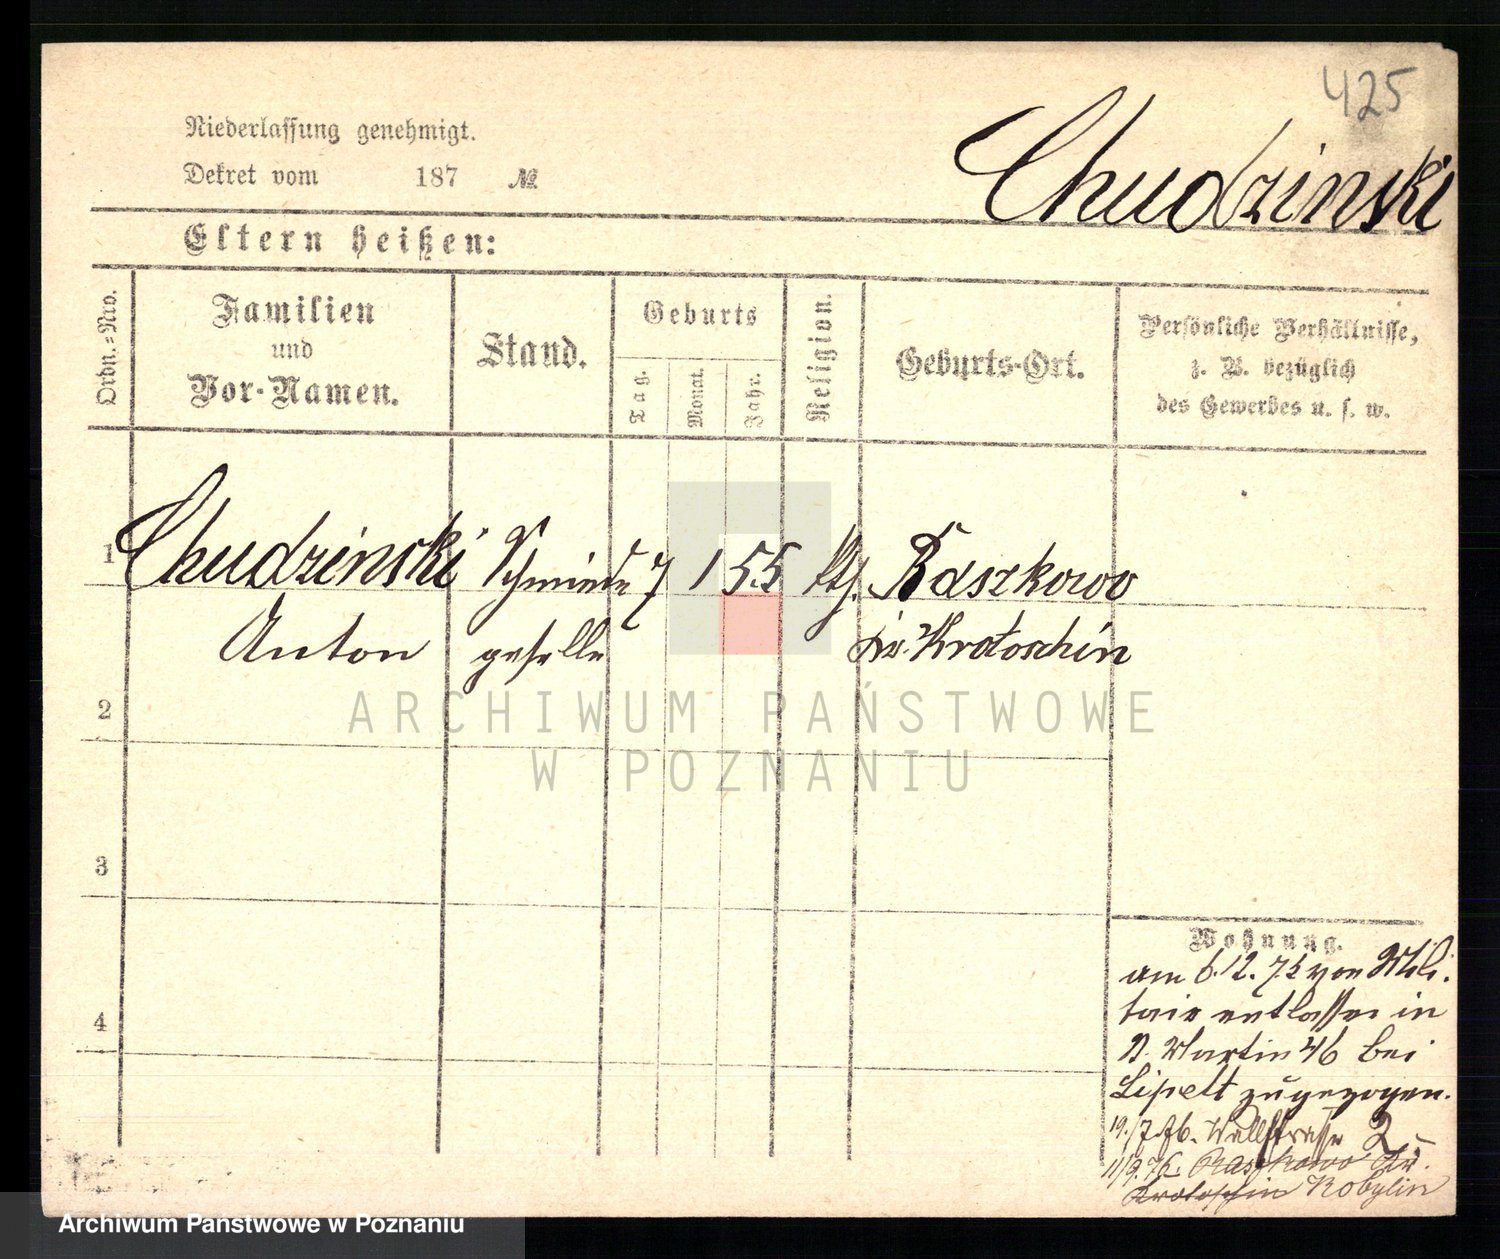 425
Niederlassung genehmigt.
Dekret vom 187 №
Chudzinski
Eltern heißen:
Ordn.=Nro.
Familien
und
Vor-Namen.
Stand.
Geburts
Tag.
Monat.
Jahr.
Religion.
Geburts-Ort.
Persönliche Verhältnisse,
z. B. bezüglich
des Gewerbes u. s. w.
1 Chudzinski Schmiede 7 1 55 kth. Raszkowo
Anton geselle Kr. Krotoschin
2
3
4
Wohnung.
am 6.12.75 von Mili-
tair entlassen in
St. Martin 46 bei
Lipelt zugezogen.
19./7.76. Wallstrasse 2
11/9.76. Raszkowo Kr.
Krotoschin Kobylin
ARCHIWUM PAŃSTWOWE
W POZNANIU
Archiwum Państwowe w Poznaniu